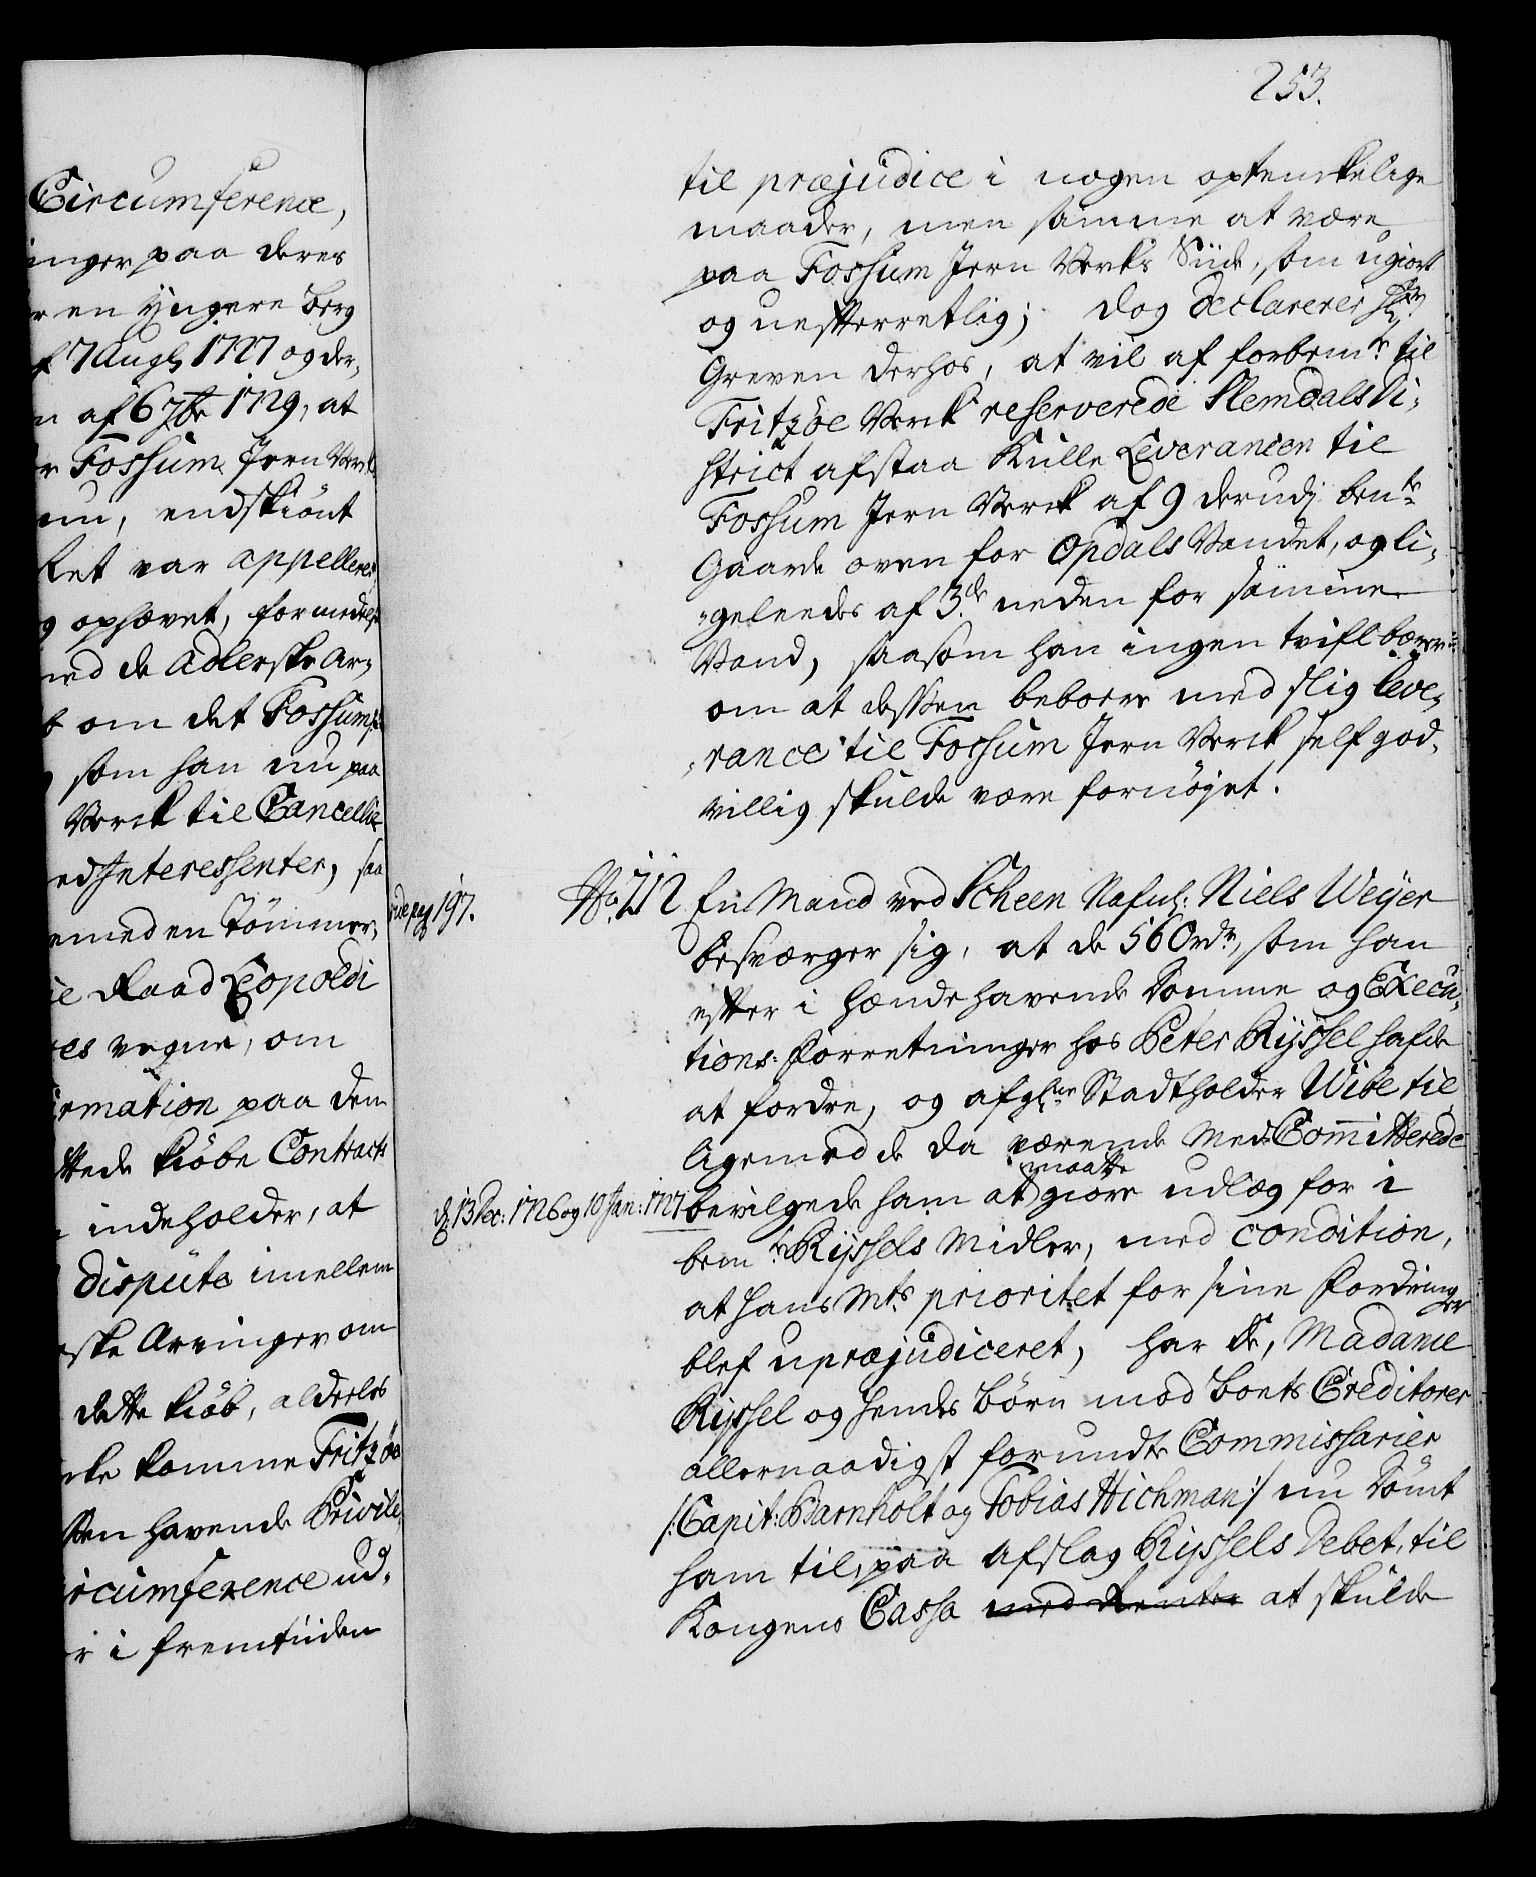 Circumference,
inger paa deres
r en yngere Berg
f 7 Aug: 1727 og der,
n af 6 7br 1729, at
r Fossum Jern Verk
nu, endskiönt
Ret var appelleret
g ophævet, formedelst
med de Adlerske Ar,
t om det Fossum,
som han nu paa
Verck til Cancellie
ed Interessenter, saa
emed en Tömmer,
ie Raad Leopoldi
es vegne, om
irmation paa den
ttede Kiöbe Contract
indeholder, at
Dispüte imellem
ske Arvinger om
dette Kiöb, alderles
cke komme Fritzöe
sen havende Privile,
ircumference ud,
r i fremtiiden
253.
til præjudice i nogen optenckelige
maader, men samme at være
paa Fossum Jern Vercks Siide, som ugiort
og uefterretlig; dog declarerer Hr
Greven derhos, at vil af forbemte til
Fritzöe Verck reserverede Slemdals Di,
strict afstaa Kulle Leverancen til
Fossum Jern Verck af 9 derudj bente
Gaarde oven for Opdals Vandet, og li,
geleedes af 3de neden for samme
Vand, saasom han ingen tvifl bærer
om at dessen beboere med slig Leve,
rance til Fossum Jern Verck self god,
villig skulde være fornöjet.
vide pag 197.
No. 212 En Mand ved Scheen Nafnl: Niels Weyer
besværger sig, at de 560 rdr, som han
efter i hændehavende Domme og Execu,
tions: Forretninger hos Peter Ryssel hafde
at fordre, og afgl. hr Stadtholder Wibe til
Ligemed de da værende Med: Committerede
d. 13 Dec: 1726 og 10 Jan: 1727
bevilgede ham at maatte giöre udlæg for i
bemte Ryssels Midler, med condition,
at Hans Mts prioritet for sine Fordringer
blef upræjudiceret, har de, Madame
Ryssel og hendes Börn mod Boets Creditorer
allernaadigst forundte Commissarier
/: Capit: Barnholt og Tobias Hichman :/ nu Dömt
ham til, paa afslag Ryssels Debet, til
Kongens Cassa med Renter at skulde